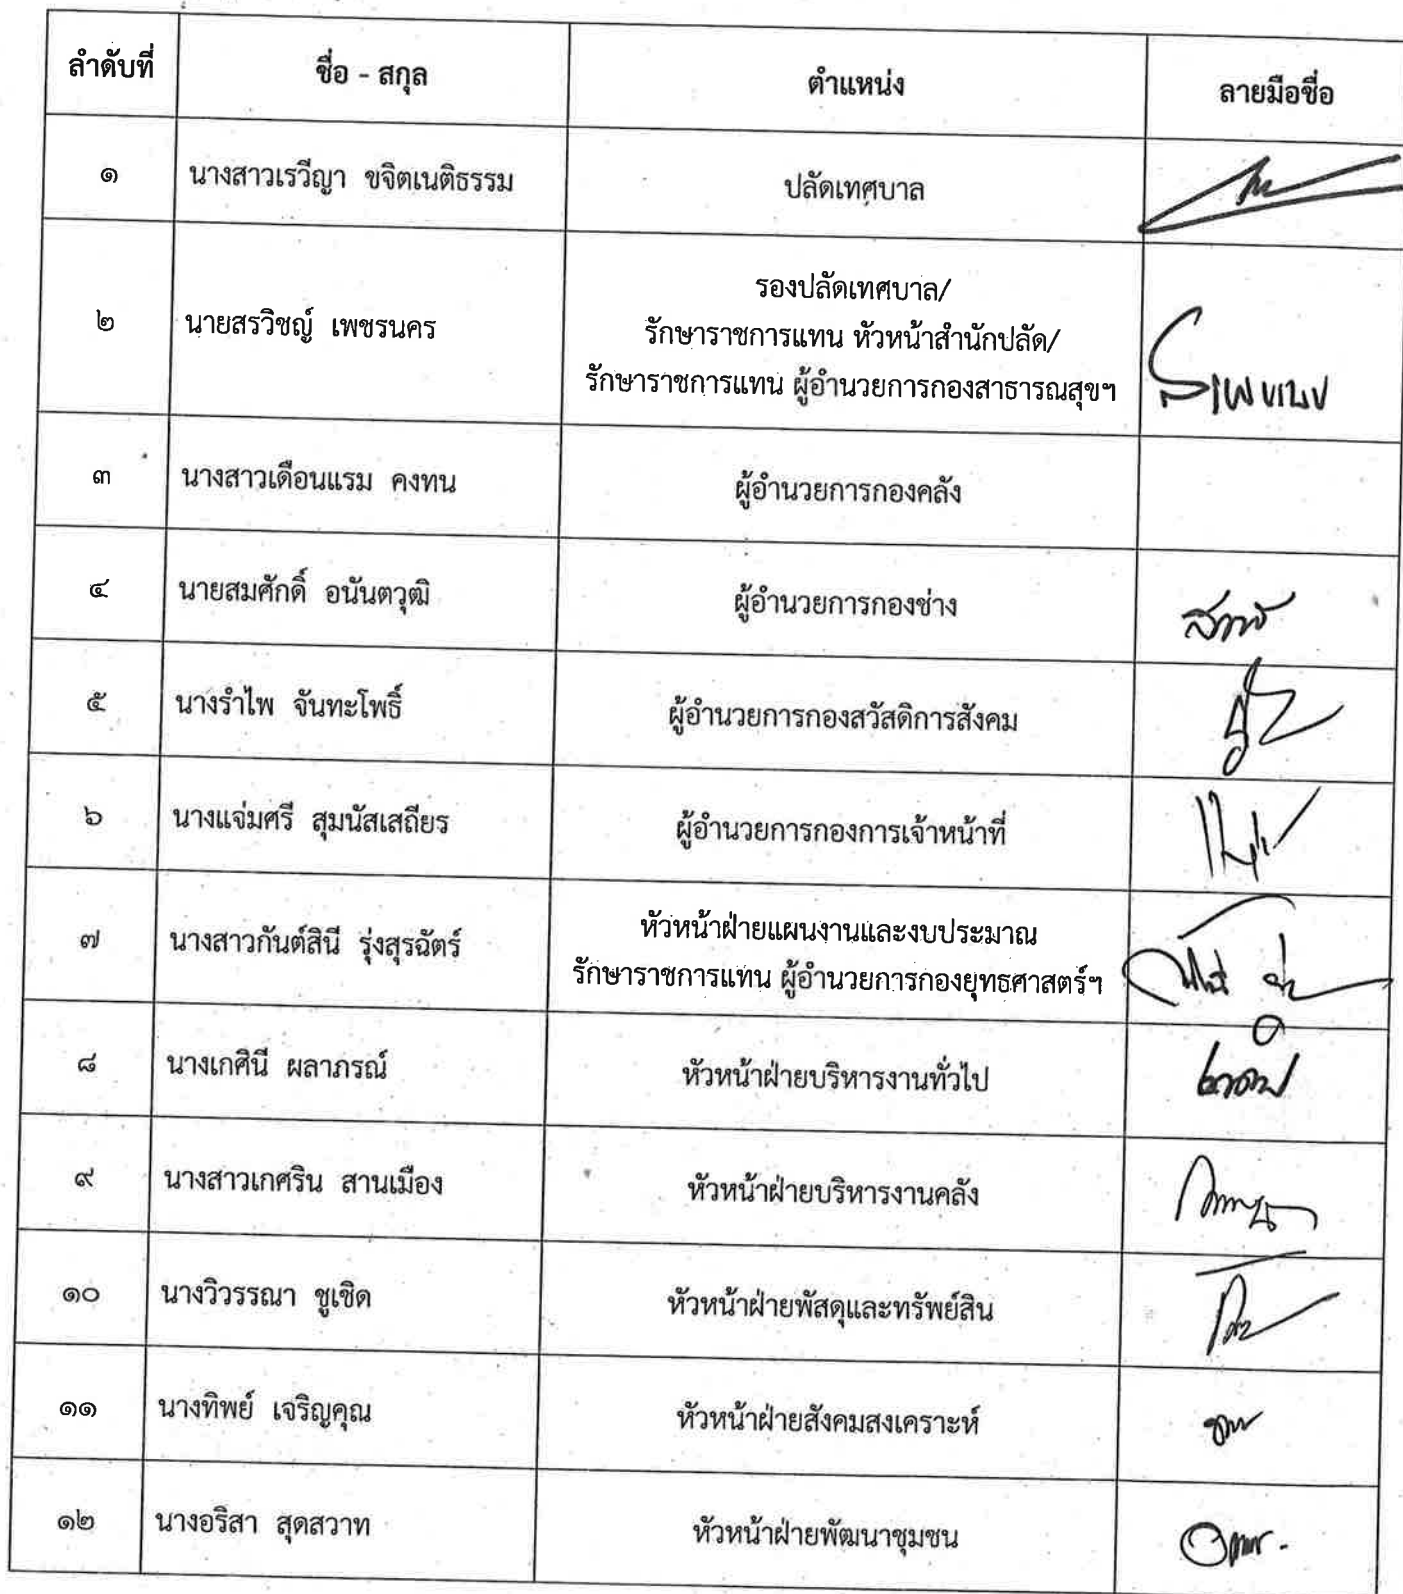 ลำดับที่ ชื่อ - สกุล ตำแหน่ง ลายมือชื่อ
๑ นางสาวเรวีญา ขจิตเนติธรรม ปลัดเทศบาล
๒ นายสรวิชญ์ เพชรนคร รองปลัดเทศบาล/
รักษาราชการแทน หัวหน้าสำนักปลัด/
รักษาราชการแทน ผู้อำนวยการกองสาธารณสุขฯ
๓ นางสาวเดือนแรม คงทน ผู้อำนวยการกองคลัง
๔ นายสมศักดิ์ อนันตวุฒิ ผู้อำนวยการกองช่าง
๕ นางรำไพ จันทะโพธิ์ ผู้อำนวยการกองสวัสดิการสังคม
๖ นางแจ่มศรี สุมนัสเสถียร ผู้อำนวยการกองการเจ้าหน้าที่
๗ นางสาวกันต์สินี รุ่งสุรฉัตร์ หัวหน้าฝ่ายแผนงานและงบประมาณ
รักษาราชการแทน ผู้อำนวยการกองยุทธศาสตร์ฯ
๘ นางเกศินี ผลาภรณ์ หัวหน้าฝ่ายบริหารงานทั่วไป
๙ นางสาวเกศริน สานเมือง หัวหน้าฝ่ายบริหารงานคลัง
๑๐ นางวิวรรณา ชูเชิด หัวหน้าฝ่ายพัสดุและทรัพย์สิน
๑๑ นางทิพย์ เจริญคุณ หัวหน้าฝ่ายสังคมสงเคราะห์
๑๒ นางอริสา สุดสวาท หัวหน้าฝ่ายพัฒนาชุมชน